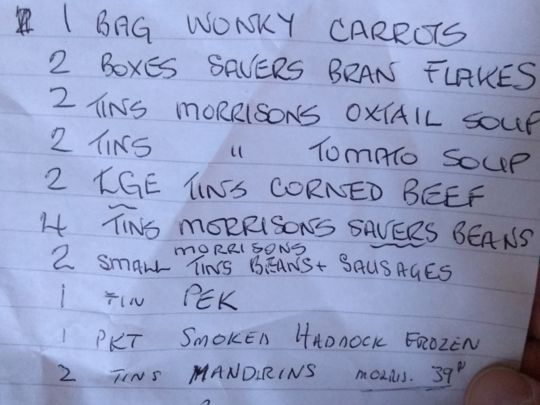 1 BAG WONKY CARROTS
2 BOXES SAVERS BRAN FLAKES
2 TINS MORRISONS OXTAIL SOUP
2 TINS " TOMATO SOUP
2 LGE TINS CORNED BEEF
4 TINS MORRISONS SAVERS BEANS
2 SMALL MORRISONS TINS BEANS + SAUSAGES
1 TIN PEK
1 PKT SMOKED HADDOCK FROZEN
2 TINS MANDRINS MORRIS. 39P